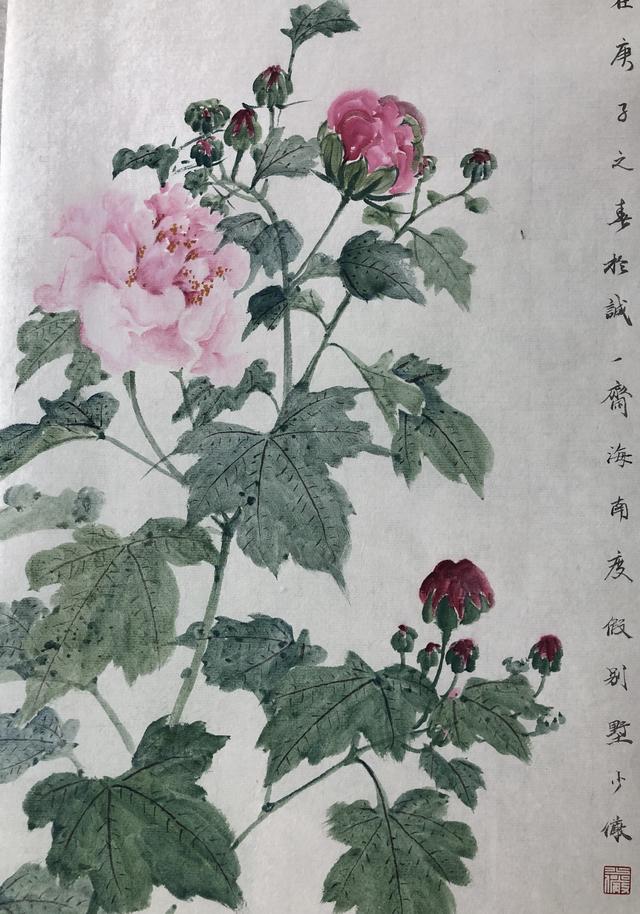 在庚子之春於誠一齋海南度假别墅少儀